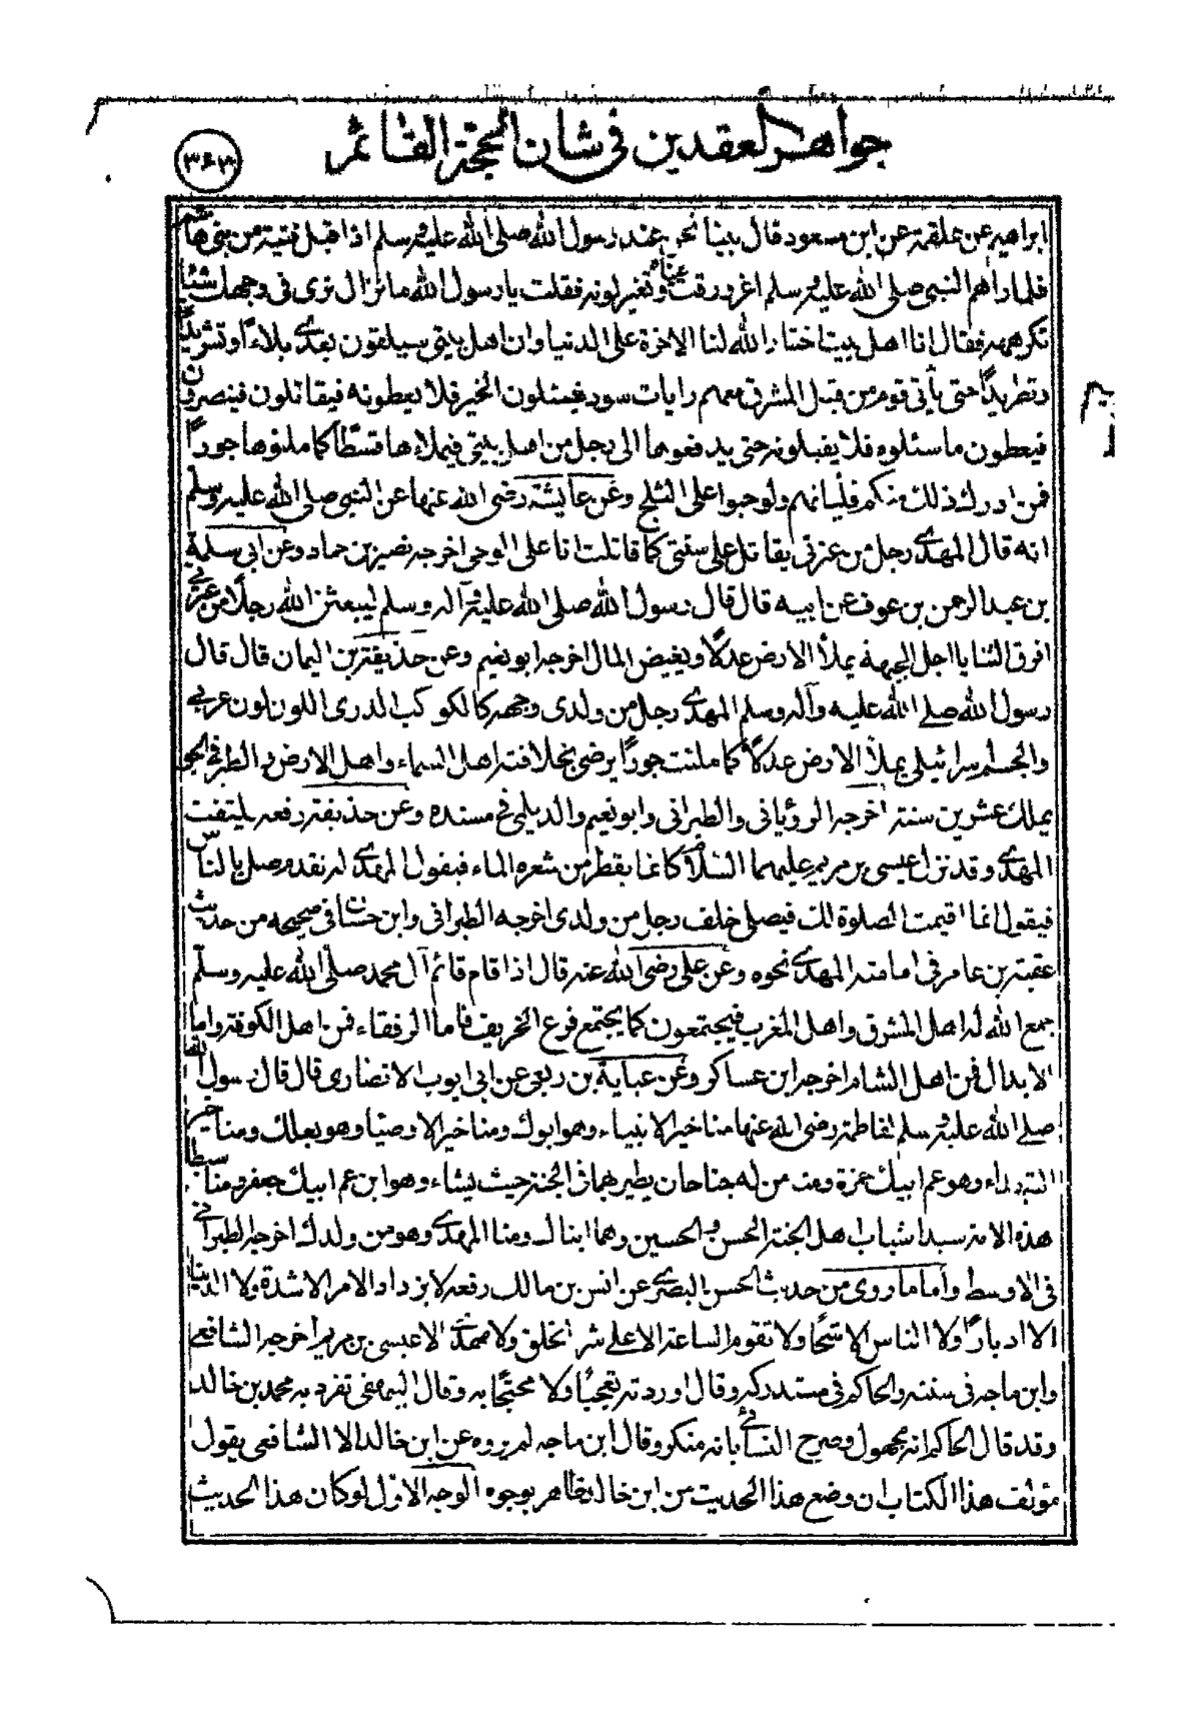 جواهر العقدين في شان الحجة القائم
۳۶۳
ابراهيم عن علقمة عن ابن مسعود قال بينا نحن عند رسول الله صلى الله عليه وسلم اذ اقبل فتية من بني هاشم
فلما راهم النبي صلى الله عليه وسلم اغرورقت عيناه وتغير لونه فقلت يا رسول الله ما نزال نرى في وجهك شيئا
نكرهه فقال انا اهل بيت اختار الله لنا الاخرة على الدنيا وان اهل بيتي سيلقون بعدي بلاءً وتشريدًا
وتطريدًا حتى يأتي قوم من قبل المشرق معهم رايات سود فيسئلون الخير فلا يعطونه فيقاتلون فينصرون
فيعطون ما سئلوه فلا يقبلونه حتى يدفعوها الى رجل من اهل بيتي فيملاءها قسطًا كما ملئوها جورًا
فمن ادرك ذلك منكم فليأتهم ولو حبوا على الثلج وعن عايشة رضي الله عنها عن النبي صلى الله عليه وسلم
انه قال المهدي رجل من عترتي يقاتل على سنتي كما قاتلت انا على الوحي اخرجه نصير بن حماد وعن ابي سلمة
بن عبد الرحمن بن عوف عن ابيه قال قال رسول الله صلى الله عليه وآله وسلم ليبعثن الله رجلًا من عترتي
افرق الثنايا اجلى الجبهة يملأ الارض عدلًا ويفيض المال اخرجه ابو نعيم وعن حذيفة بن اليمان قال قال
رسول الله صلى الله عليه وآله وسلم المهدي رجل من ولدي وجهه كالكوكب الدري اللون لون عربي
والجسم اسرائيلي يملأ الارض عدلًا كما ملئت جورًا يرضى بخلافته اهل السماء واهل الارض والطير في الجو
يملك عشرين سنة اخرجه الروياني والطبراني وابو نعيم والديلمي في مسنده وعن حذيفة رفعه يلتفت
المهدي وقد نزل عيسى بن مريم عليهما السلام كانما يقطر من شعره الماء فيقول المهدي له تقدم صل بالناس
فيقول انما اقيمت الصلوة لك فيصلي خلف رجل من ولدي اخرجه الطبراني وابن حبان في صحيحه من حديث
عقبة بن عامر في امامة المهدي نحوه وعن علي رضي الله عنه قال اذا قام قائم آل محمد صلى الله عليه وسلم
جمع الله له اهل المشرق واهل المغرب فيجتمعون كما يجتمع فرع الخريف فاما الرفقاء فمن اهل الكوفة واما
الابدال فمن اهل الشام اخرجه ابن عساكر وعن عباية بن ربعي عن ابي ايوب الانصاري قال قال رسول الله
صلى الله عليه وسلم لفاطمة رضي الله عنها منا خير الانبياء وهو ابوك ومنا خير الاوصيا وهو بعلك ومنا خير
الشهداء وهو عم ابيك حمزة ومنا من له جناحان يطير بهما في الجنة حيث يشاء وهو ابن عم ابيك جعفر ومنا سبطا
هذه الامة سيدا شباب اهل الجنة الحسن والحسين وهما ابناك ومنا المهدي وهو من ولدك اخرجه الطبراني
في الاوسط واما ما روي من حديث الحسن البصري عن انس بن مالك رفعه لا يزداد الامر الا شدة ولا الدنيا
الا ادبارًا ولا الناس الا شحًا ولا تقوم الساعة الا على شر الخلق ولا مهدي الا عيسى بن مريم اخرجه الشافعي
وابن ماجه في سننه والحاكم في مستدركه وقال اوردته تعجبًا ولا محتجًا به وقال البيهقي تفرد به محمد بن خالد
وقد قال الحاكم انه مجهول وصرح النسائي بانه منكر وقال ابن ماجه لم يروه عن ابن خالد الا الشافعي يقول
مؤلف هذا الكتاب ان وضع هذا الحديث من ابن خالد ظاهر بوجوه الوجه الاول لو كان هذا الحديث